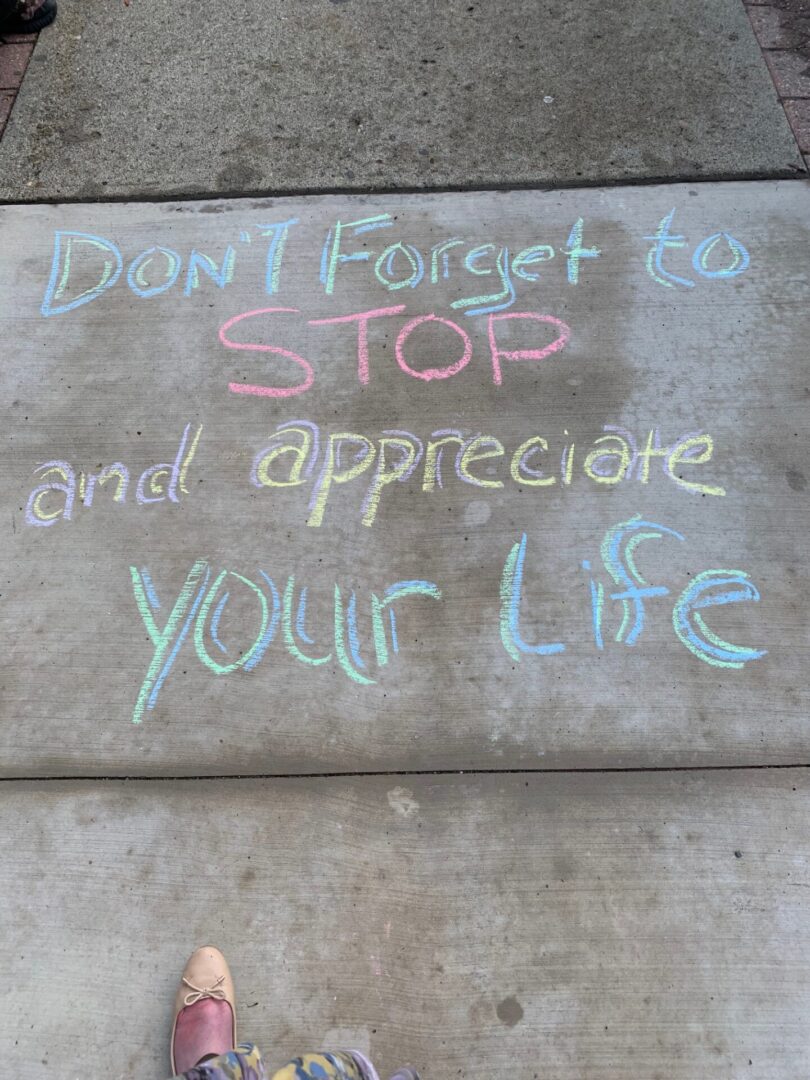 DON'T Forget to
STOP
and appreciate
your Life